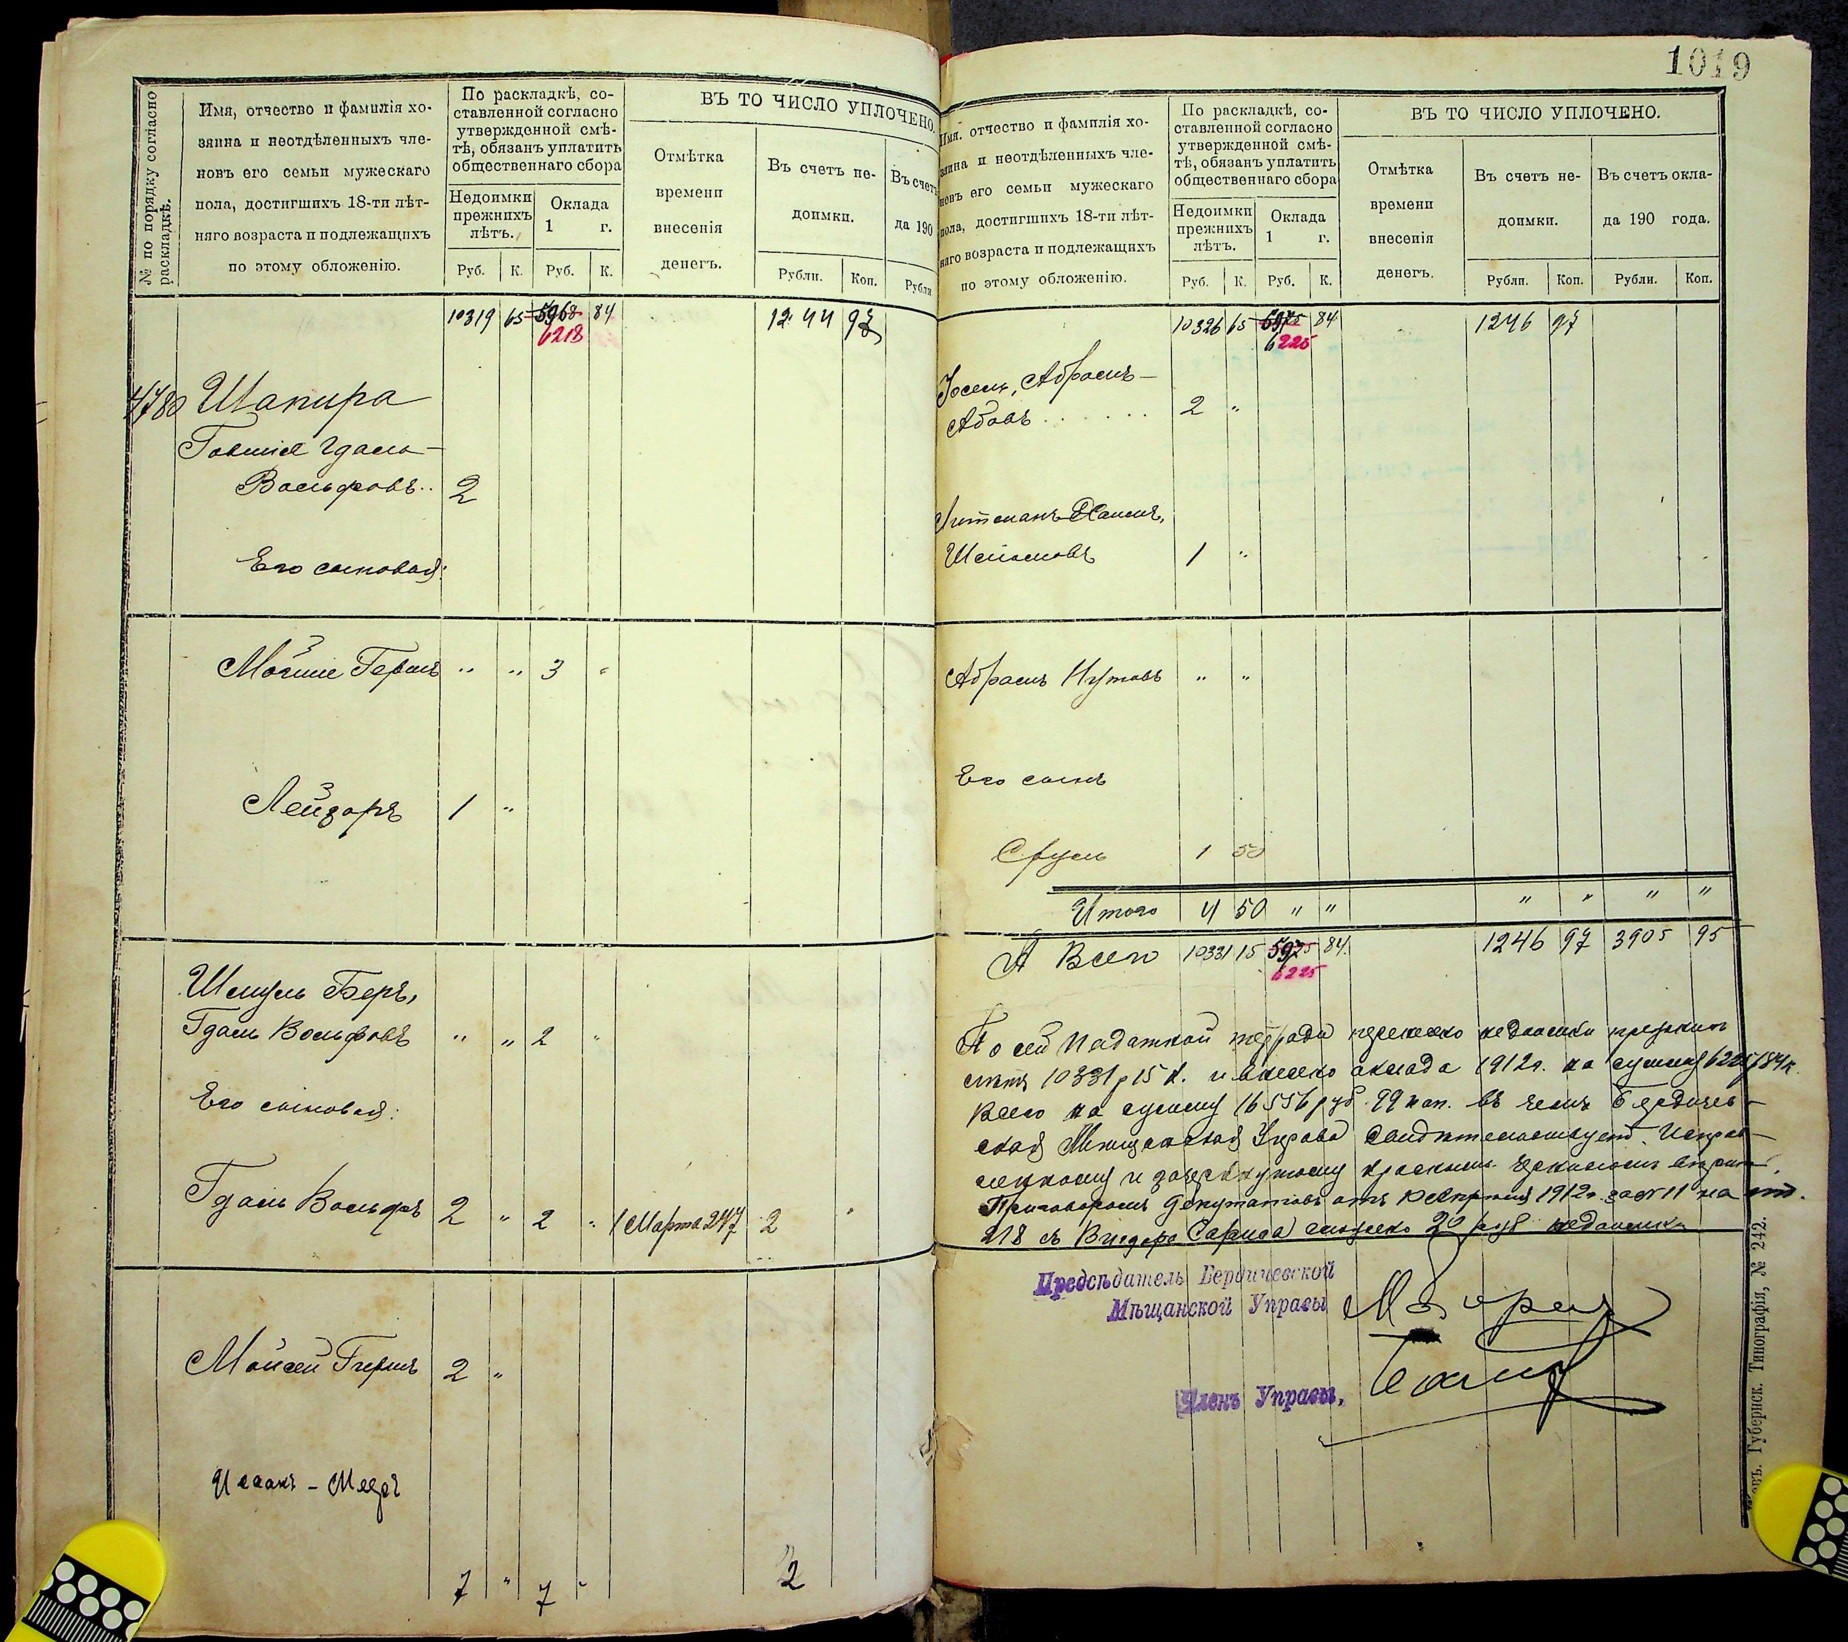 № по порядку согласно
раскладкѣ.
Имя, отчество и фамилія хо-
зяина и неотдѣленныхъ чле-
новъ его семьи мужескаго
пола, достигшихъ 18-ти лѣт-
няго возраста и подлежащихъ
по этому обложенію.
По раскладкѣ, со-
ставленной согласно
утвержденной смѣ-
тѣ, обязанъ уплатить
общественнаго сбора
Недоимки
прежнихъ
лѣтъ.
Оклада
1 г.
Руб. К. Руб. К.
ВЪ ТО ЧИСЛО УПЛОЧЕНО.
Отмѣтка
времени
внесенія
денегъ.
Въ счетъ не-
доимки.
Въ счетъ
да 190
Рубли. Коп. Рубли
10319 65 5968 84 1244 97
6218
4780 Шапира
Вольфовъ.. 2
Его сыновья:
3
Мойше Гершъ " " 3 "
3
Лейзоръ 1 "
Шмуль Беръ,
Гдаль Вольфовъ " " 2 "
Его сыновья:
Гдаль Вольфъ 2 " 2 " 1 Марта 247 2 "
Мойсей Гершъ 2 "
Исаакъ - Мееръ
7 " 7 " 2
1019
Имя, отчество и фамилія хо-
зяина и неотдѣленныхъ чле-
новъ его семьи мужескаго
пола, достигшихъ 18-ти лѣт-
няго возраста и подлежащихъ
по этому обложенію.
По раскладкѣ, со-
ставленной согласно
утвержденной смѣ-
тѣ, обязанъ уплатить
общественнаго сбора
Недоимки
прежнихъ
лѣтъ.
Оклада
1 г.
Руб. К. Руб. К.
ВЪ ТО ЧИСЛО УПЛОЧЕНО.
Отмѣтка
времени
внесенія
денегъ.
Въ счетъ не-
доимки.
Въ счетъ окла-
да 190 года.
Рубли. Коп. Рубли. Коп.
10326 65 5975 84 1246 97
6225
Абовъ . . . . . . 2 "
1 "
Абрамъ Нутовъ " "
Его сынъ
Сруль 1 50
Итого 4 50 " " " " " "
А Всего 10331 15 5975 84 1246 97 3905 95
6225
По сей Податной тетради недоимки прежнихъ
лѣтъ 10331 р 15 к. и оклада 1912 г. на сумму 6225 р 84 к.
Всего на сумму 16556 руб. 99 коп. въ чемъ Бердичев-
ская Мѣщанская Управа свидѣтельствуетъ.
и зачеркнутому красными чернилами
Приговоромъ депутатовъ отъ 1912 г. за № 11 на
218 съ 20 руб недоимки
Предсѣдатель Бердичевской
Мѣщанской Управы
Членъ Управы,
Губернск. Типографія, № 242.